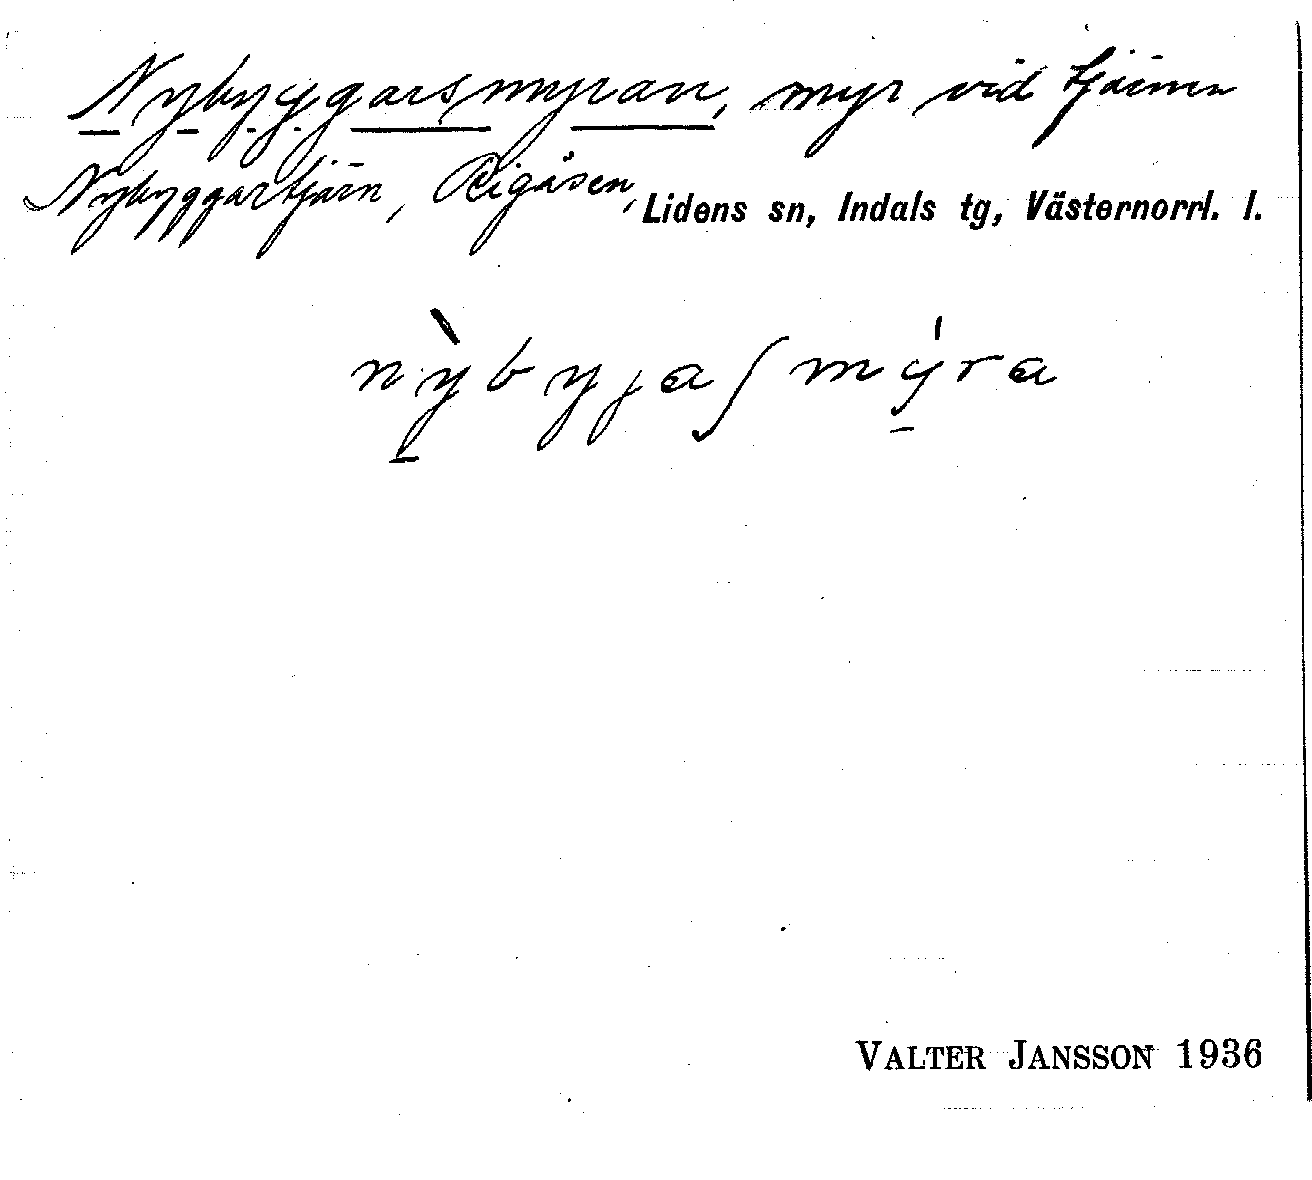 Nybyggarsmyran, myr vid tjärnen
Nybyggartjärn, Rigåsen, Lidens sn, Indals tg, Västernorrl. l.
nỳbyjaʃmýra
VALTER JANSSON 1936